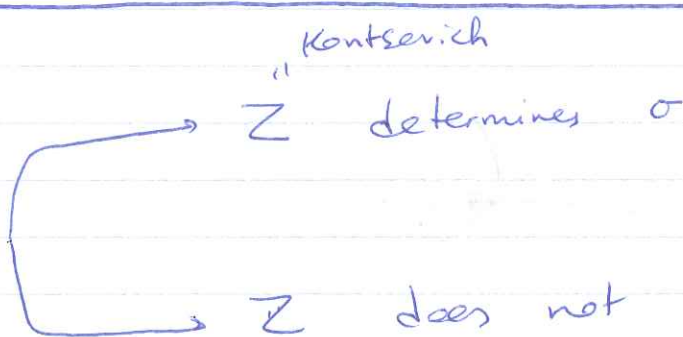 Kontsevich
"
Z determines σ
Z does not